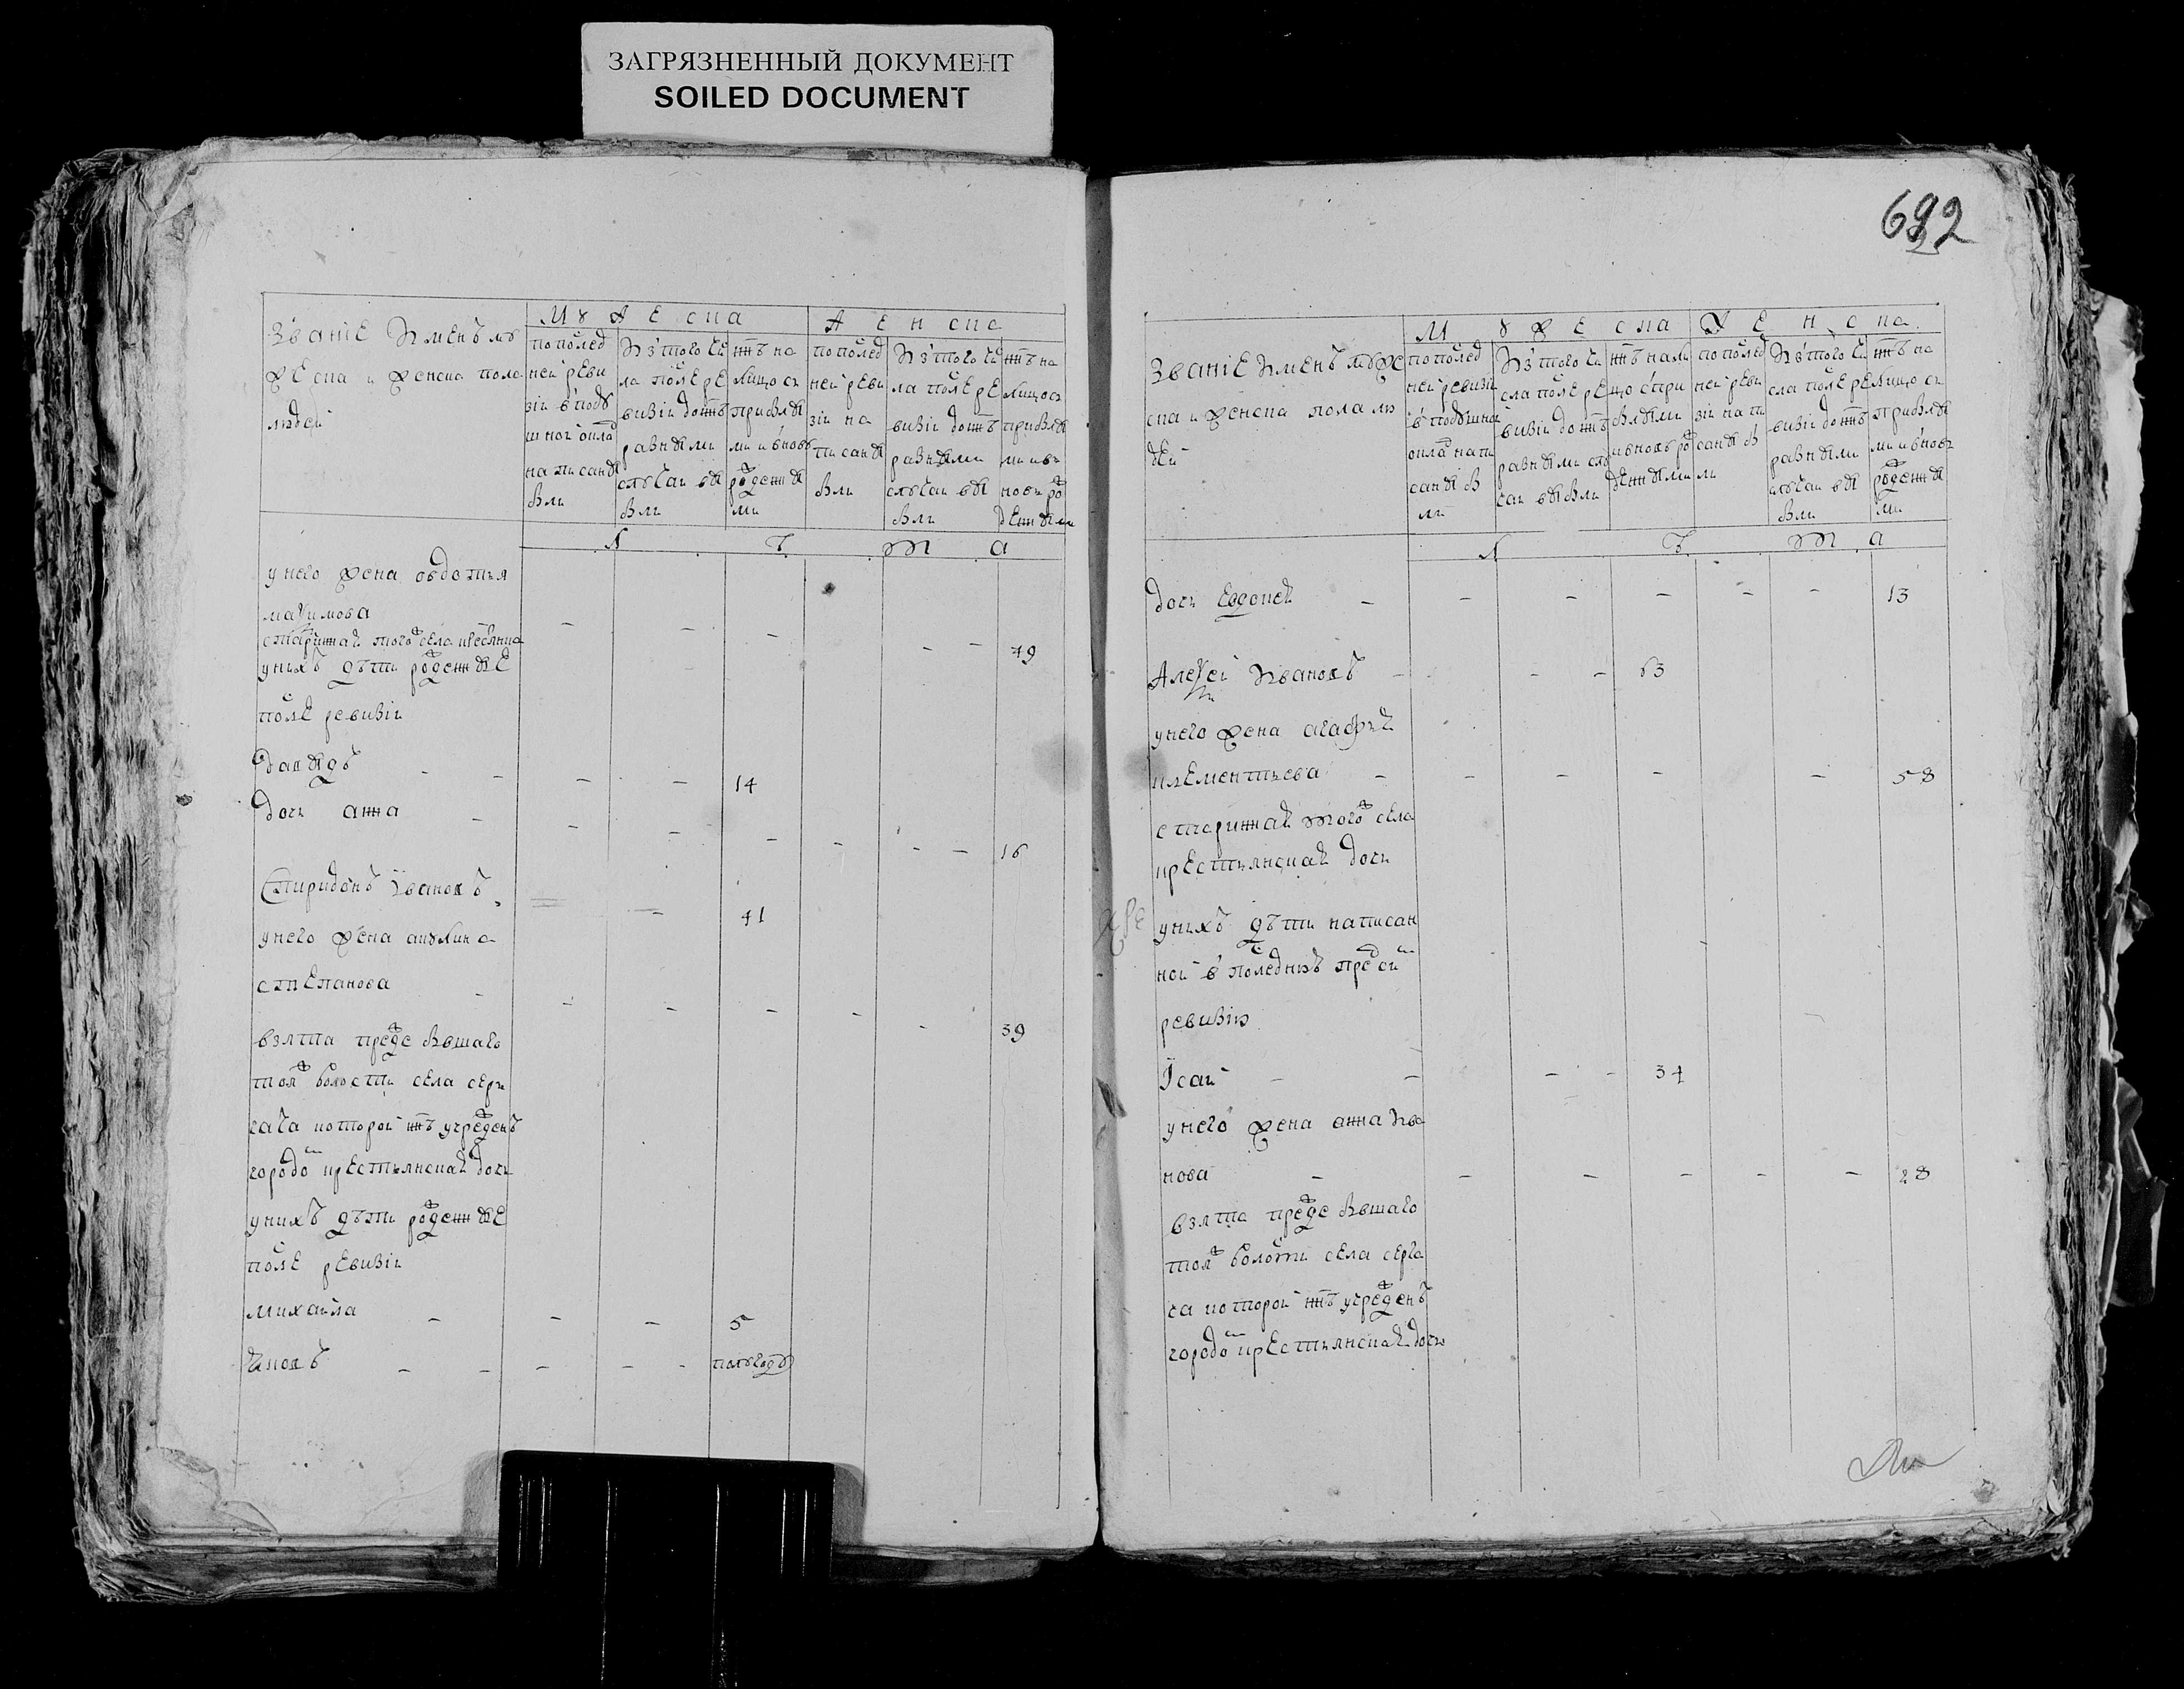 ЗАГРЯЗНЕННЫЙ ДОКУМЕНТ
SOILED DOCUMENT
Званіе Именъ му
жеска и женска пола
людей
Мужеска
по послед
ней реви
зіи в поду
шной оклад
написаны
были
Из того чи
сла после ре
визіи до ннѣ
разными
случаи вы
были
ннѣ на
лицо съ
прибылы
ми и вновь
рожденны
ми
Женска
по послед
ней реви
зіи на
писаны
были
Из того чи
сла после ре
визіи до ннѣ
разными
случаи вы
были
ннѣ на
лицо съ
прибылы
ми и в
новь ро
жденными
Лѣта
у него жена овдотья
маѯимова
старинная того ж села крестьянка
49
у нихъ дѣти рожденные
после ревизіи
давыдъ - - - - 14
дочь анна - - - - - - - 16
Спиридонъ Ивановъ - 41
у него жена акулина
степанова - - - - - - 39
взята прежде бывшаго
той ж волости села серга
ча которой ннѣ учрежденъ
городом крестьянская дочь
у нихъ дѣти рожденные
после ревизіи
михайла - - - 5
яковъ - - - - - полугоду
692
Званіе Именъ муже
ска и женска пола лю
дей
Мужеска
по послед
ней ревизи
и в подушной
оклад напи
саны бы
ли
Из того чи
сла после ре
визіи до ннѣ
разными слу
чаи выбыли
ннѣ нали
цо с при
былыми
и вновь ро
жденными
Женска
по послед
ней реви
зіи напи
саны бы
ли
Из того чи
сла после ре
визіи до ннѣ
разными
случаи вы
были
ннѣ на
лицо съ
прибылы
ми и вновь
рожденны
ми
Лѣта
дочь Евдокея - - - - - - 13
Алеѯей Ивановъ - - - 63
у него жена агафья
клементьева - - - - - 58
старинная того ж села
крестьянская дочь
у нихъ дѣти написан
ной в последнюю пред сим
ревизію
Исай - - - - 34
у него жена анна Ива
нова - - - - - - 28
взята прежде бывшаго
той ж волости села серга
ча которой ннѣ учрежденъ
городом крестьянская дочь